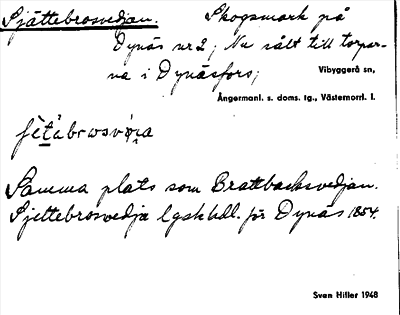 Sjättebrosvedjan. Skogsmark på
Dynäs nr 2; Nu sålt till torpar-
na i Dynäsfors;
Vibyggerå sn,
Ångermanl. s. doms. tg., Västernorrl. l.
Samma plats som Brattbacksvedjan.
Sjettebrosvedja lgskhdl. för Dynäs 1854.
Sven Hitler 1948